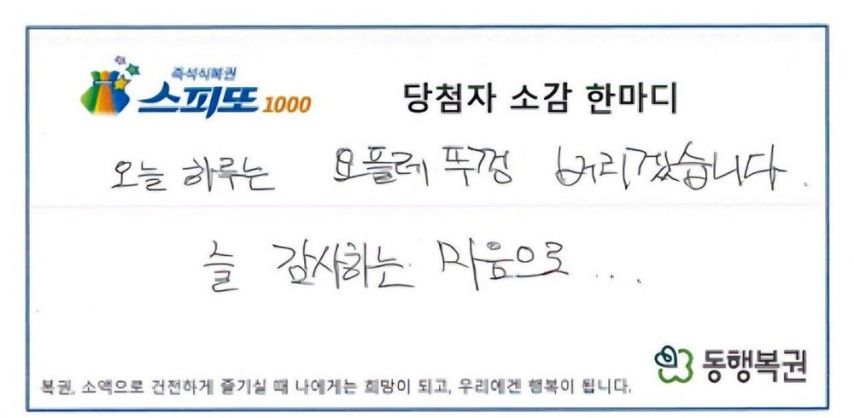 즉석식복권
스피또1000
당첨자 소감 한마디
오늘 하루는 요플레 뚜껑 버리겠습니다.
늘 감사하는 마음으로...
동행복권
복권, 소액으로 건전하게 즐기실 때 나에게는 희망이 되고, 우리에겐 행복이 됩니다.